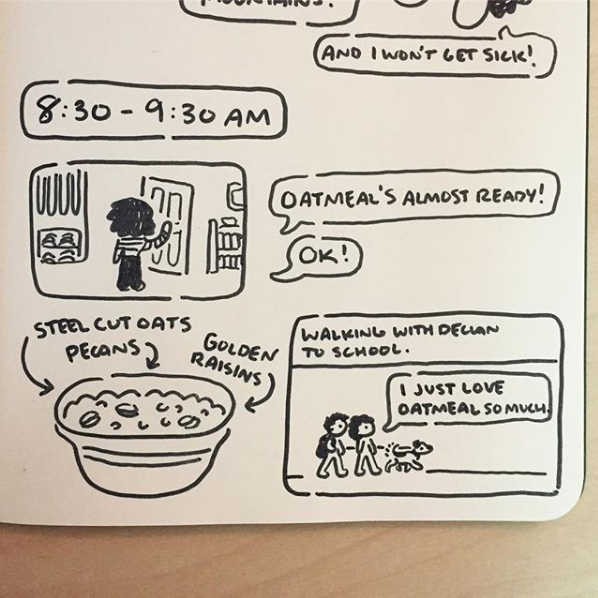 MOUNTAINS.
AND I WON'T GET SICK!
8:30 - 9:30 AM
OATMEAL'S ALMOST READY!
OK!
STEEL CUT OATS
PECANS
GOLDEN
RAISINS
WALKING WITH DECLAN
TO SCHOOL.
I JUST LOVE
OATMEAL SO MUCH.